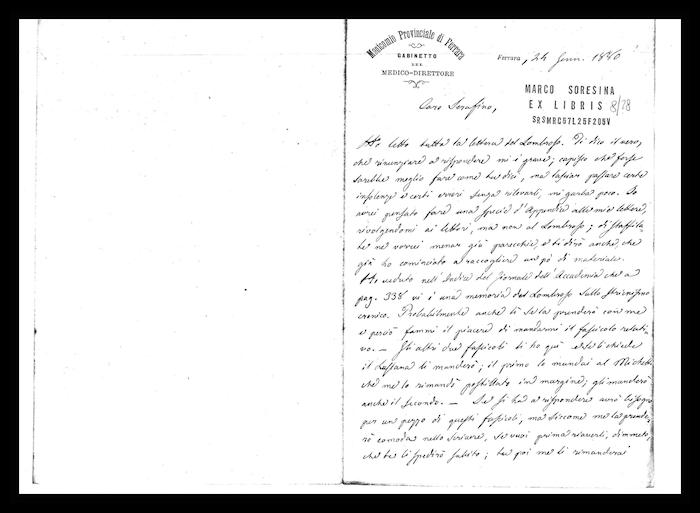 Manicomio Provinciale di Ferrara
GABINETTO
DEL
MEDICO-DIRETTORE
Ferrara, 24 Genn. 1880
MARCO SORESINA
EX LIBRIS 8/28
SRSMRC57L25F205V
Caro Serafino,
Ho letto tutta la lettera del Lombroso. Ti dico il vero,
che rinunziare a rispondere mi è grave; capisco che forse
sarebbe meglio fare come tu dici, ma lasciar passare certe
insolenze e certi errori senza rilevarli, mi garba poco. Io
avrei pensato fare una specie d'Appendice alle mie lettere,
rivolgendomi ai lettori, ma non al Lombroso; di staffila
te ne vorrei menar già parecchie, e ti dirò anche, che
già ho cominciato a raccogliere un pò di materiale.
Ho veduto nell'Indice del Giornale dell'Accademia che a
pag. 338 vi è una memoria del Lombroso sullo Stricnismo
cronico. Probabilmente anche lì se la prenderà con me
e perciò fammi il piacere di mandarmi il fascicolo relati-
vo. — Gli altri due fascicoli ti ho quì e se li chiede
il Lussana ti manderò; il primo lo mandai al Michetti
che me lo rimandò postillato in margine; gli manderò
anche il secondo. — Se si ha a rispondere avrò bisogno
per un pezzo di questi fascicoli, ma siccome me la prende-
rò comoda nello scrivere, se vuoi prima riaverli, dimmelo,
che te li spedirò subito; tu poi me li rimanderai